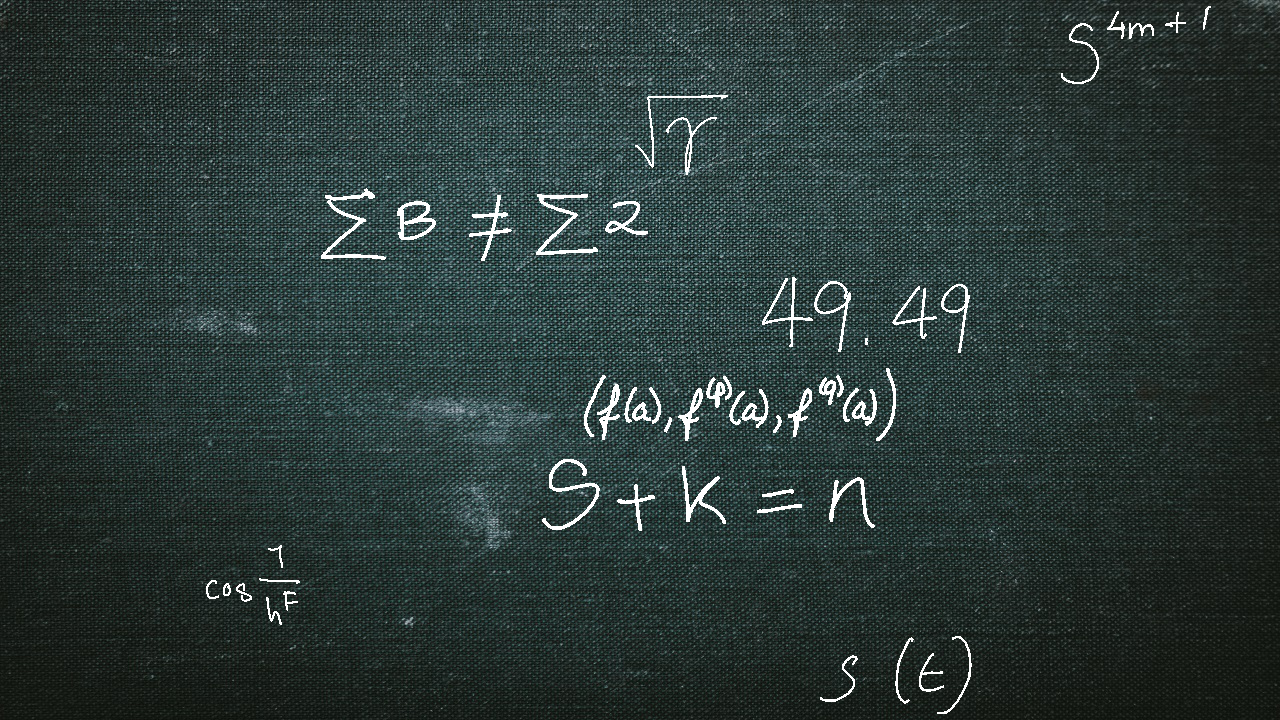 S^{4m+1}
\sqrt{\gamma}
\sum B \neq \sum 2
49.49
(f(a), f^{(p)}(a), f^{(q)}(a))
S + k = n
\cos \frac{7}{h^F}
s(t)